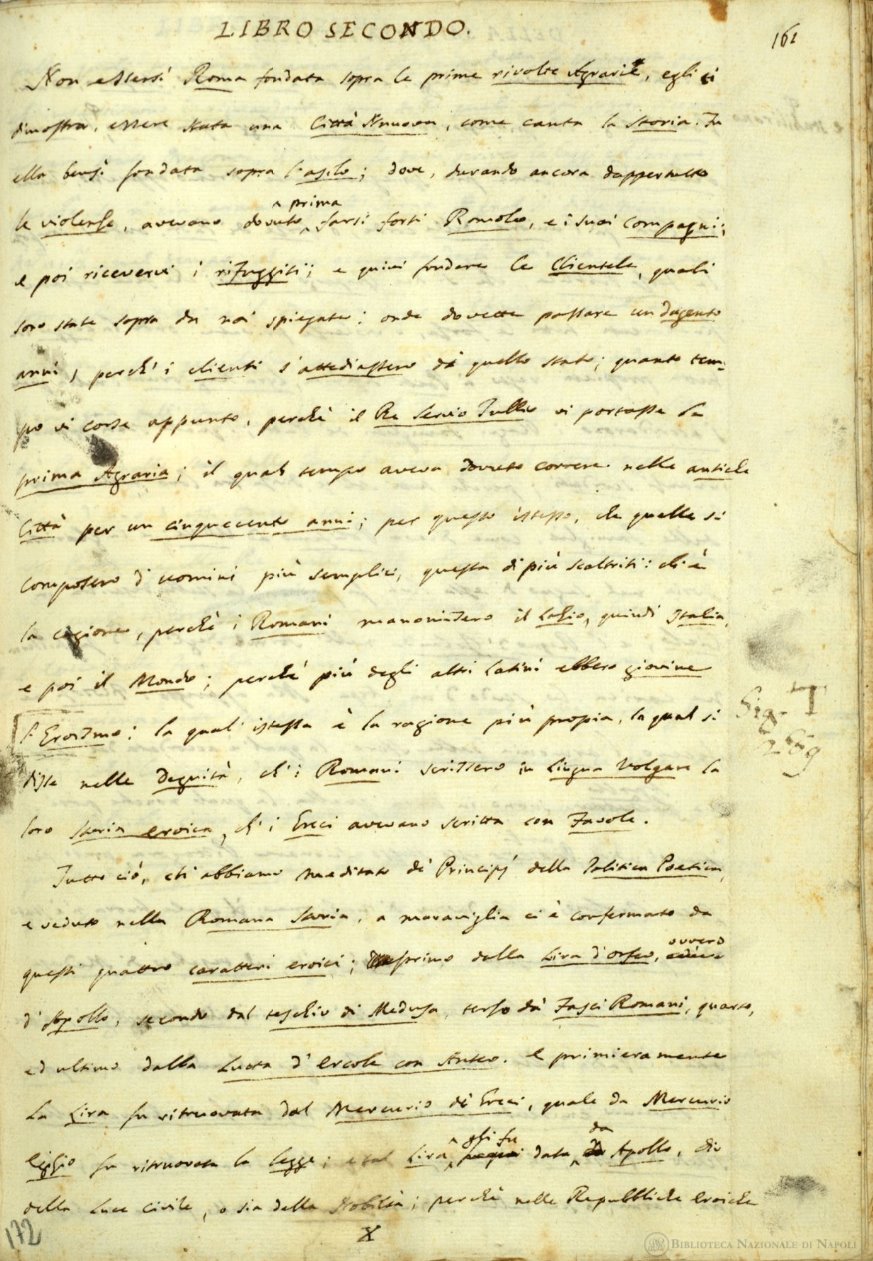 LIBRO SECONDO.
161
Non essersi Roma fondata sopra le prime rivolte Agrarie, egli ci
dimostra, essere stata una Città Nuova, come canta la Storia. Fu
ella bensì fondata sopra l'asilo; dove, durando ancora dappertutto
le violenze, avevano dovuto prima farsi forti Romolo, e i suoi compagni;
e poi ricevervi i rifuggiti; e quivi fondare le Clientele, quali
sono state sopra da noi spiegate: onde dovette passare un dugento
anni, perchè i clienti s'attediassero di quello stato; quanto tem-
po vi corse appunto, perchè il Re Servio Tullio vi portasse la
prima Agraria; il qual tempo aveva dovuto correre nelle antiche
Città per un cinquecento anni; per questo istesso, che quelle si
composero d'uomini più semplici, questa di più scaltriti: ch'è
la cagione, perchè i Romani manomisero il Lazio, quindi Italia,
e poi il Mondo; perchè più degli altri Latini ebbero giovine
l'Eroismo: la qual' istessa è la ragione più propia, la qual si
disse nelle Degnità, ch'i Romani scrissero in Lingua Volgare la
loro storia eroica, ch'i Greci avevano scritta con Favole.
Tutto ciò, ch'abbiamo meditato de' Principj della Politica Poetica,
e veduto nella Romana Storia, a maraviglia ci è confermato da
questi quattro caratteri eroici; primo della Lira d'Orfeo, ovvero
d'Apollo, secondo dal teschio di Medusa, terzo da' Fasci Romani, quarto,
ed ultimo dalla Lutta d'Ercole con Anteo. E primieramente
La Lira fu ritruovata dal Mercurio de' Greci, quale da Mercurio
Egizio fu ritruovata la legge; e tal Lira gli fu data da Apollo, Dio
della Luce civile, o sia della Nobiltà; perchè nelle Repubbliche Eroiche
172
X
BIBLIOTECA NAZIONALE DI NAPOLI